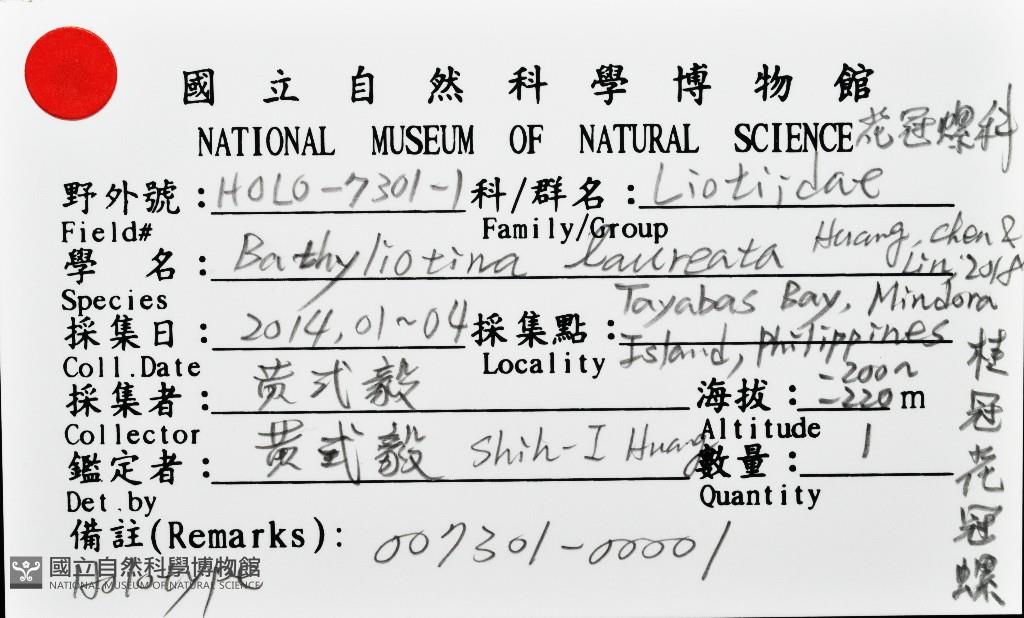 國立自然科學博物館
NATIONAL MUSEUM OF NATURAL SCIENCE 花冠螺科
野外號：HOLO-7301-1 科/群名：Liotiidae
Field# Family/Group
學名：Bathyliotina laureata Huang, Chen & Lin, 2018
Species
採集日：2014.01~04 採集點：Tayabas Bay, Mindora Island, Philippines
Coll.Date Locality
採集者：黃式毅 海拔：-200~-220m
Collector Altitude
鑑定者：黃式毅 Shih-I Huang 數量：1
Det.by Quantity
備註(Remarks)：007301-00001
Holotype
桂冠花冠螺
國立自然科學博物館
NATIONAL MUSEUM OF NATURAL SCIENCE